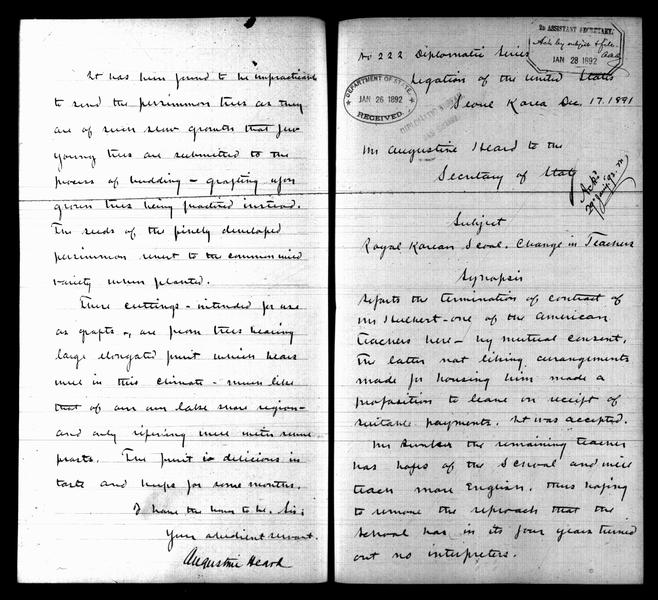 It has been found to be impracticable
to send the persimmon trees as they
are of such slow growth that few
young trees are submitted to the
process of budding - grafting upon
grown trees being practiced instead.
The seeds of the finely developed
persimmon revert to the common wild
variety when planted.
These cuttings - intended for use
as grafts -, are from trees bearing
large elongated fruit which bears
well in this climate - much like
that of our own lake shore region -
and only ripening well after some
frosts. The fruit is delicious in
taste and keeps for some months.
I have the honor to be, Sir,
Your obedient servant.
Augustine Heard
TO ASSISTANT SECRETARY,
Ack by subject & file
JAN 28 1892
No 222 Diplomatic Series
Legation of the United States
DEPARTMENT OF STATE,
JAN 26 1892
RECEIVED.
Seoul Korea Dec. 17. 1891
Mr Augustine Heard to the
Secretary of State
Ackd
29 Jan'y 92
Subject
Royal Korean School. Change in Teachers
Synopsis
Reports the termination of contract of
Mr Hulbert - one of the American
teachers here - by mutual consent.
The latter not liking arrangements
made for housing him made a
proposition to leave on receipt of
suitable payments. It was accepted.
Mr Bunker the remaining teacher
has hopes of the School and will
teach more English. thus hoping
to remove the reproach that the
School has in its four years turned
out no interpreters.